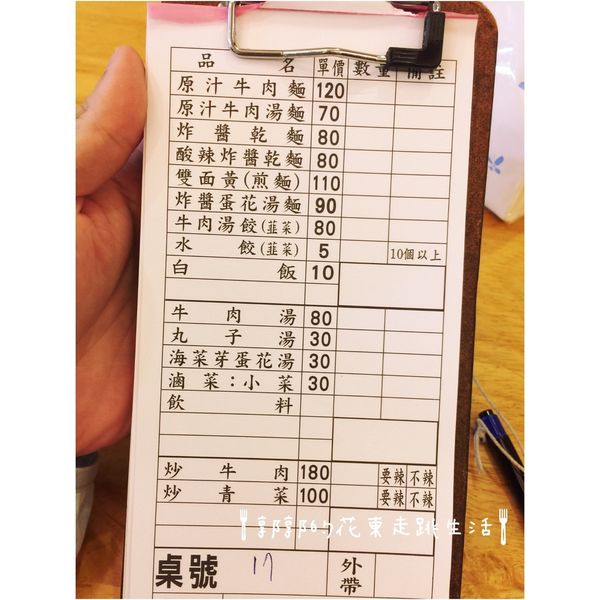 品名 單價 數量 備註
原汁牛肉麵 120
原汁牛肉湯麵 70
炸醬乾麵 80
酸辣炸醬乾麵 80
雙面黃(煎麵) 110
炸醬蛋花湯麵 90
牛肉湯餃(韮菜) 80
水餃(韮菜) 5 10個以上
白飯 10
牛肉湯 80
丸子湯 30
海菜芽蛋花湯 30
滷菜:小菜 30
飲料
炒牛肉 180 要辣 不辣
炒青菜 100 要辣 不辣
郭郭的花東走跳生活
桌號 17 外帶